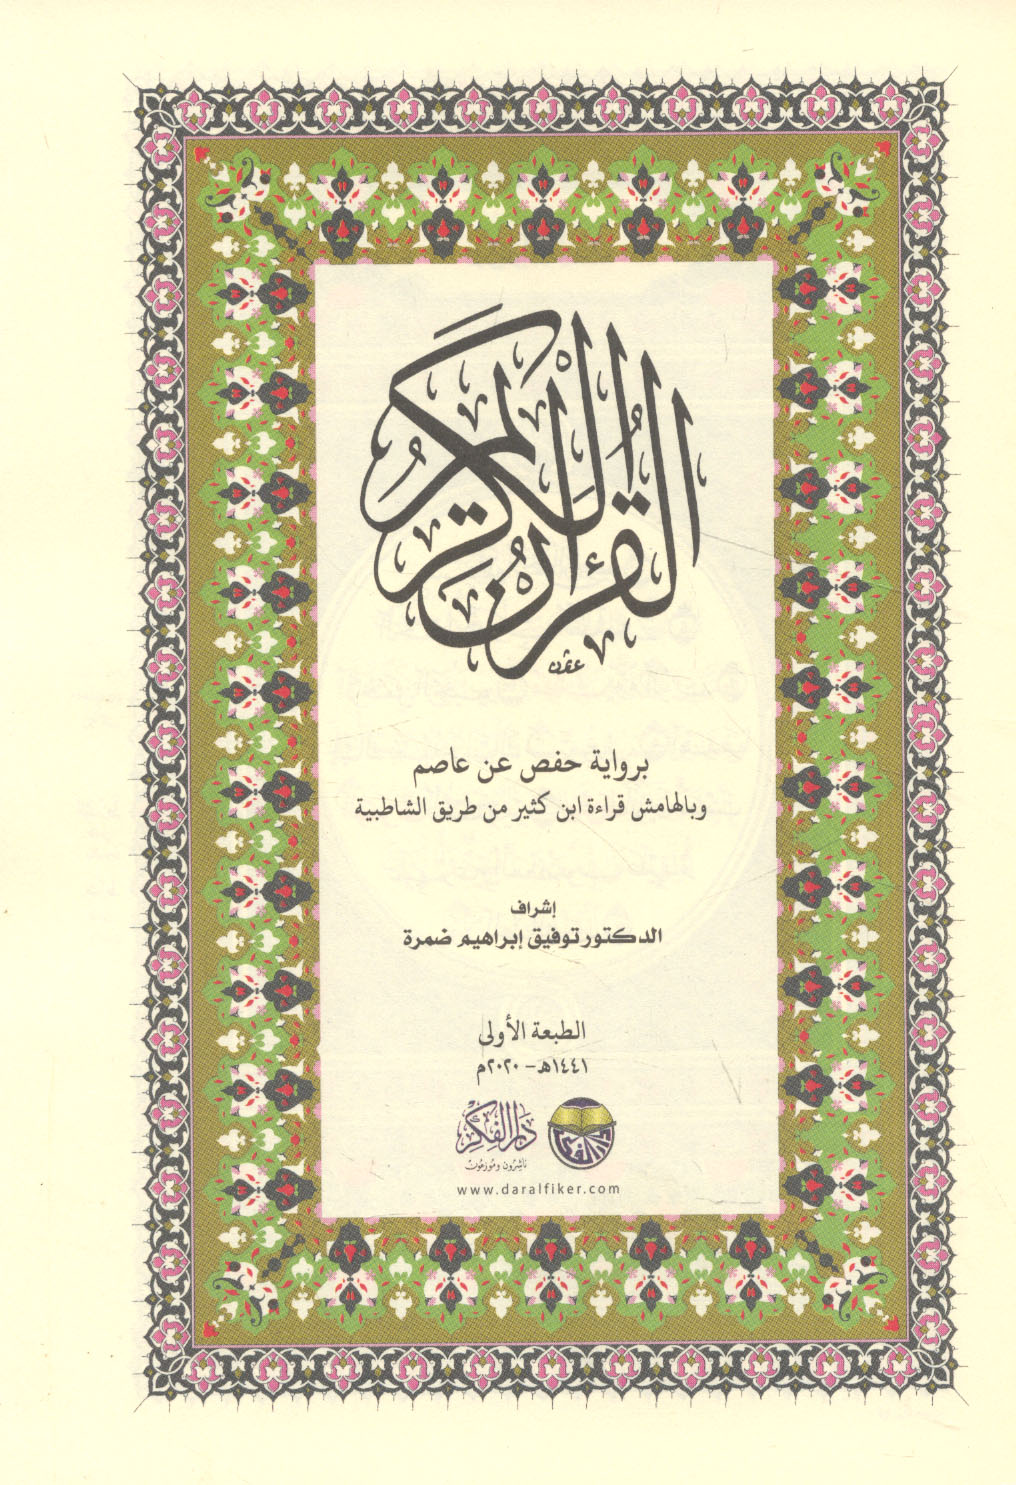 القرءان الكريم
عثمن
برواية حفص عن عاصم
وبالهامش قراءة ابن كثير من طريق الشاطبية
إشراف
الدكتور توفيق إبراهيم ضمرة
الطبعة الأولى
١٤٤١هـ - ٢٠٢٠م
دار الفكر
دار الفكر
ناشرون وموزعون
www.daralfiker.com